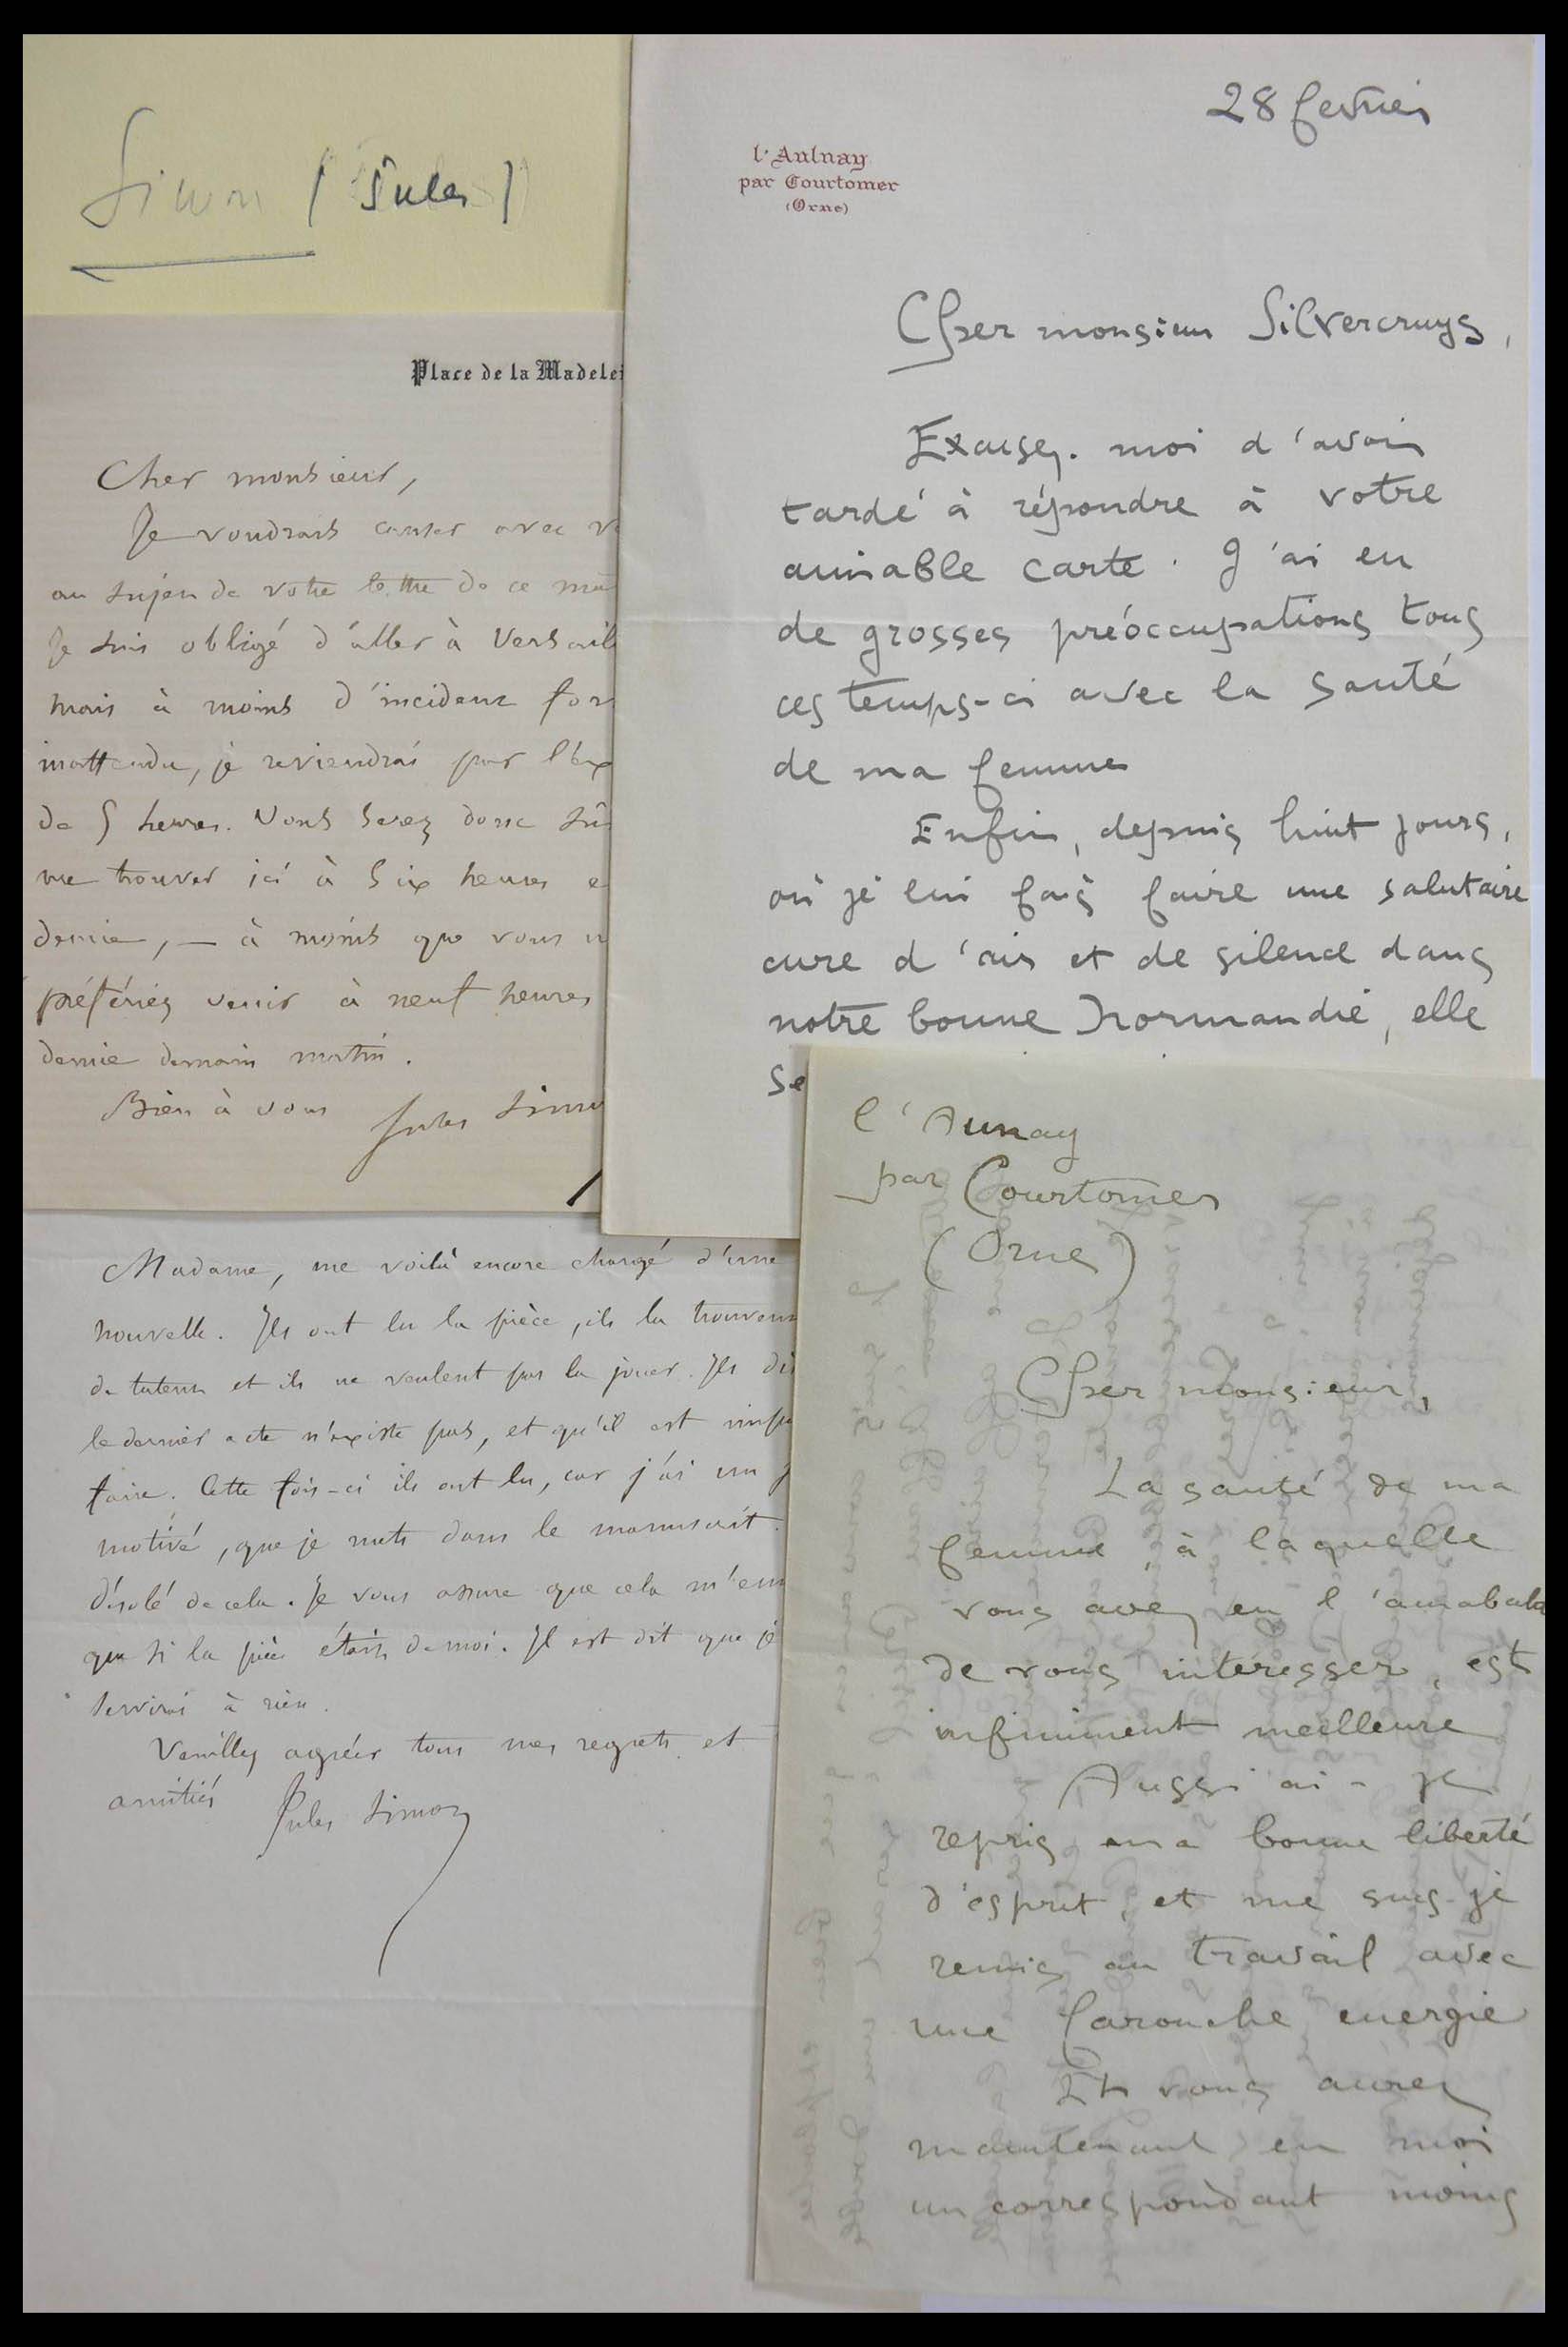 Simon (Jules)
Place de la Madelei
Cher monsieur,
Je voudrais causer avec vo
au sujet de votre lettre de ce ma
Je suis obligé d'aller à Versaill
mais à moins d'incident for
inattendu, je reviendrai par l'exp
de 5 heures. Vous serez donc sûr
me trouver ici à six heures e
demie, — à moins que vous n
préfériez venir à neuf heures
demie demain matin.
Bien à vous Jules Simo
Madame, me voilà encore chargé d'une
nouvelle. Ils ont lu la pièce, ils la trouvent
de talent et ils ne veulent pas la jouer. Ils di
le dernier acte n'existe pas, et qu'il est impo
faire. Cette fois-ci ils ont lu, car j'ai un
motivé, que je mets dans le manuscrit.
désolé de cela. Je vous assure que cela m'enn
que si la pièce était de moi. Il est dit que je
servirai à rien.
Veuillez agréer tous mes regrets et
amitiés Jules Simon
28 fevrier
l'Aulnay
par Courtomer
(Orne)
Cher monsieur Silvercruys,
Excusez-moi d'avoir
tardé à répondre à votre
aimable carte. J'ai eu
de grosses préoccupations tous
ces temps-ci avec la santé
de ma femme
Enfin, depuis huit jours,
où je lui fais faire une salutaire
cure d'air et de silence dans
notre bonne Normandie, elle
se
l'Aunay
par Courtomer
(Orne)
Cher monsieur,
La santé de ma
femme, à laquelle
vous avez eu l'amabala
de vous intéresser, est
infiniment meilleure
Aussi ai-je
repris ma bonne liberté
d'esprit, et me suis-je
remis au travail avec
une farouche energie
Et vous aurez
maintenant en moi
un correspondant moins